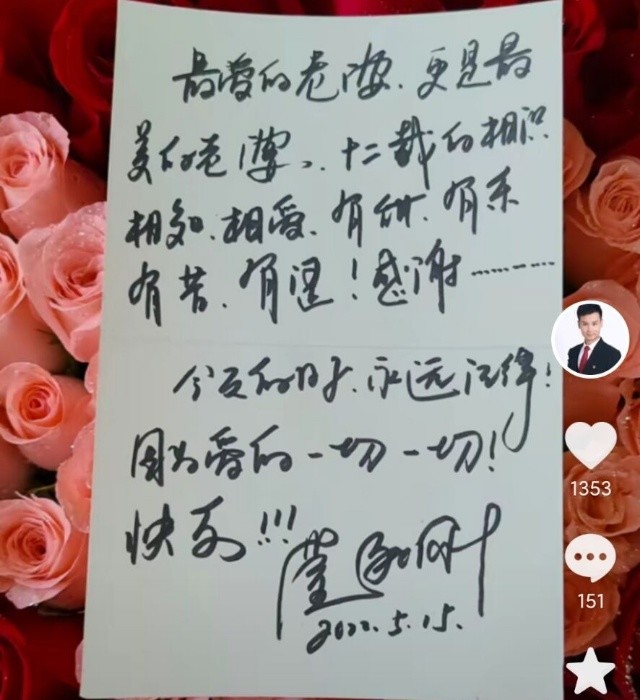 最爱的老婆、更是最
美的老婆、十二载的相识
相知、相爱、有甜、有乐
有苦、有涩！感谢…………
今天的日子、永远记得！
因为爱的一切一切！
快乐!!!
2022.5.15.
1353
151